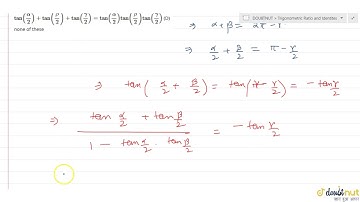 tan(α/2) + tan(β/2) + tan(γ/2) = tan(α/2)tan(β/2)tan(γ/2) (D)
none of these
DOUBTNUT • Trigonometric Ratio and Identities
⇒ α+β = 2π - γ
⇒ α/2 + β/2 = π - γ/2
⇒ tan(α/2 + β/2) = tan(π - γ/2) = -tan γ/2
⇒ (tan α/2 + tan β/2)/(1 - tan α/2 · tan β/2) = -tan γ/2
doubtnut